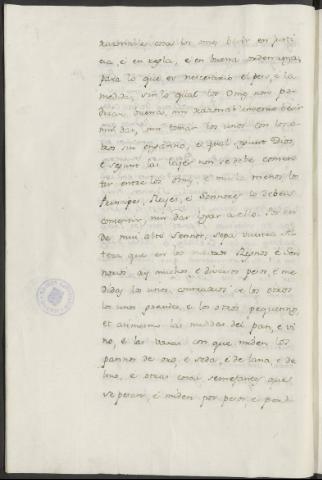 razonable cosa los omes bevir en justi
cia, è en regla, è en buena ordenanza,
para lo que es necesario el peso, è la
medida, sin lo qual los omes non po
drian buena, nin razonablemente bevir
nin dar, nin tomar los unos con los o
tros sin engaño, el qual segunt Dios,
è segunt las leyes non se debe come
ter entre los omes, è mucho menos los
Principes, Reyes, è Señores lo deben
consentir, nin dar lugar a ello. Por en
de mui alto Señor, sepa vuestra Al
teza que en los vuestros Reynos è Seño
rios, ay muchos, è diversos pesos, è me
didas los unos contrarios de los otros
los unos grandes, è los otros pequeños,
et asimismo las medidas del pan, è vi
no, è las varas con que miden los
paños de oro, è seda, è de lana, è de
lino, è otras cosas semejantes que
se pesan, è miden por peso, è por